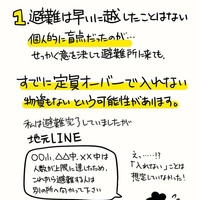 1.避難は早いに越したことはない
個人的に盲点だったのが…
せっかく意を決して避難所に来ても、
すでに定員オーバーで入れない
物資もない という可能性があります。
私は避難完了していましたが
地元LINE
〇〇小、△△中、××中は
人数が上限に達したため、
これから避難する人は
別の所へ向かって下さい
え、……!?
「入れない」ことは
想定していなかった!